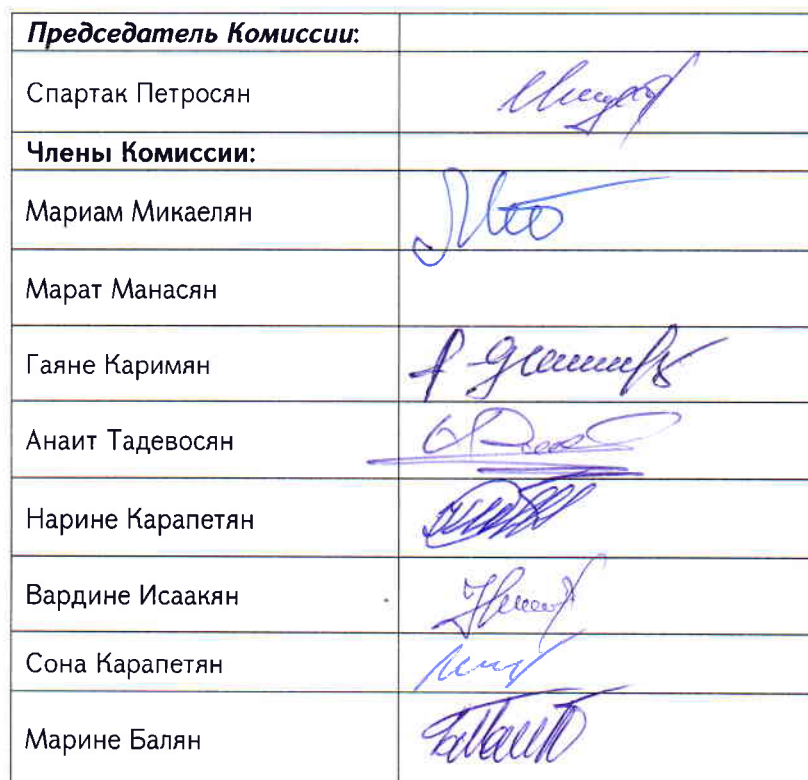 Председатель Комиссии:
Спартак Петросян
Члены Комиссии:
Мариам Микаелян
Марат Манасян
Гаяне Каримян
Анаит Тадевосян
Нарине Карапетян
Вардине Исаакян
Сона Карапетян
Марине Балян